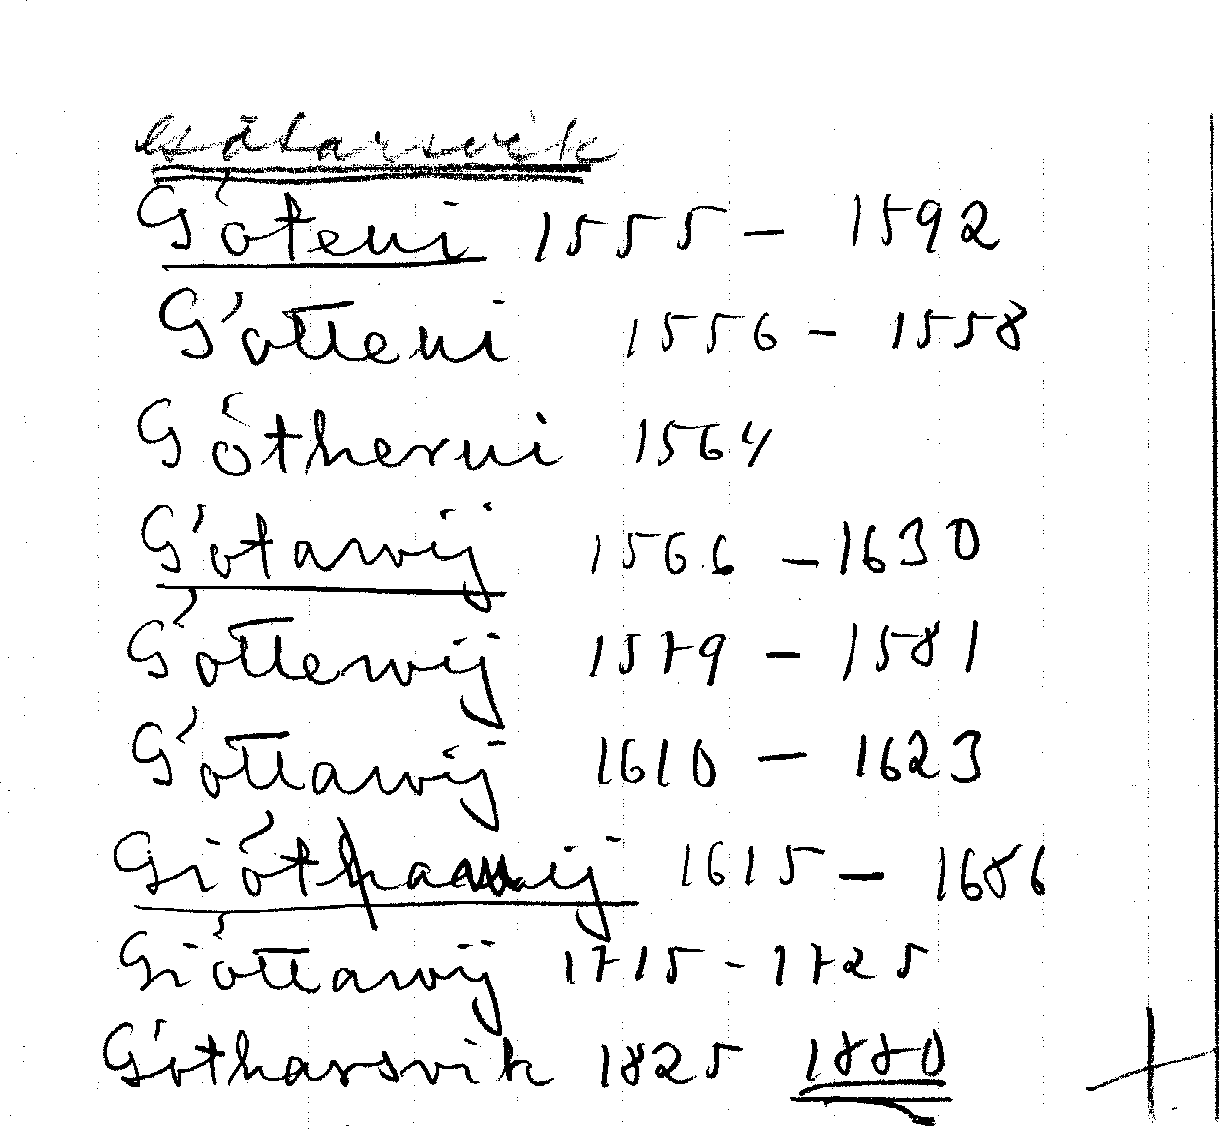 Götarsvik
Göteni 1555 - 1592
Götteni 1556 - 1558
Götherni 1564
Götarvij 1566 - 1630
Göttervij 1579 - 1581
Göttarvij 1610 - 1623
Giötharvij 1615 - 1686
Giöttarvij 1715 - 1725
Götharsvik 1825 1880